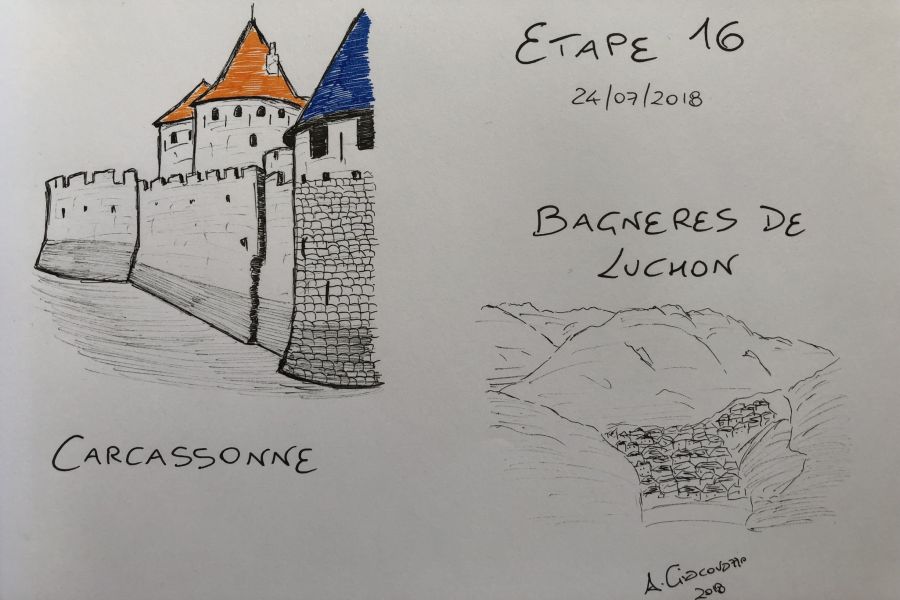 ETAPE 16
24/07/2018
BAGNERES DE
LUCHON
CARCASSONNE
A.
2018